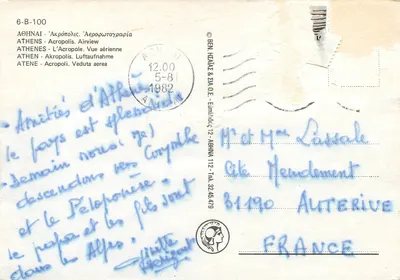 6-B-100
ΑΘΗΝΑΙ - Ἀκρόπολις. Ἀεροφωτογραφία
ATHENS - Acropolis. Airview
ATHENES - L'Acropole. Vue aérienne
ATHEN - Akropolis, Luftaufnahme
ATENE - Acropoli. Veduta aerea
12.00
5-8
1982
Amitiés d'Athènes
le pays est splendide
Demain nous
descendons vers Corynthe
et le Péloponèse.
le papa et les fils sont
dans les Alpes.
12 - ΑΘΗΝΑ 112 - Tel. 32.45.479
Mr et Mme Lassale
Cité Mendement
31190 AUTERIVE
FRANCE